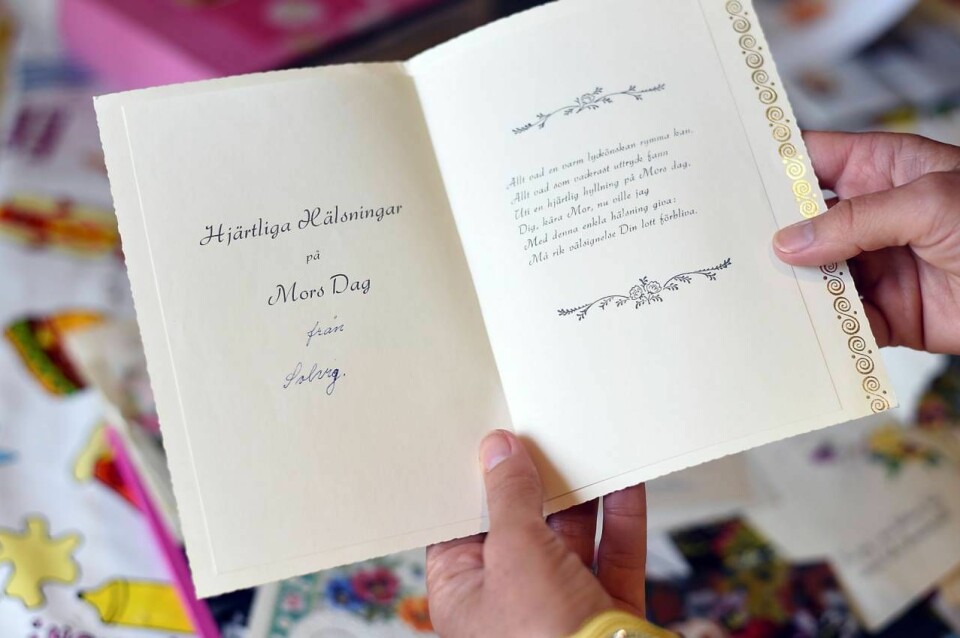 Hjärtliga Hälsningar
på
Mors Dag
från
Solvig.
Allt vad en varm lyckönskan rymma kan,
Allt vad som vackrast uttryck fann
Uti en hjärtlig hyllning på Mors dag,
Dig, kära Mor, nu ville jag
Med denna enkla hälsning giva:
Må rik välsignelse Din lott förbliva.